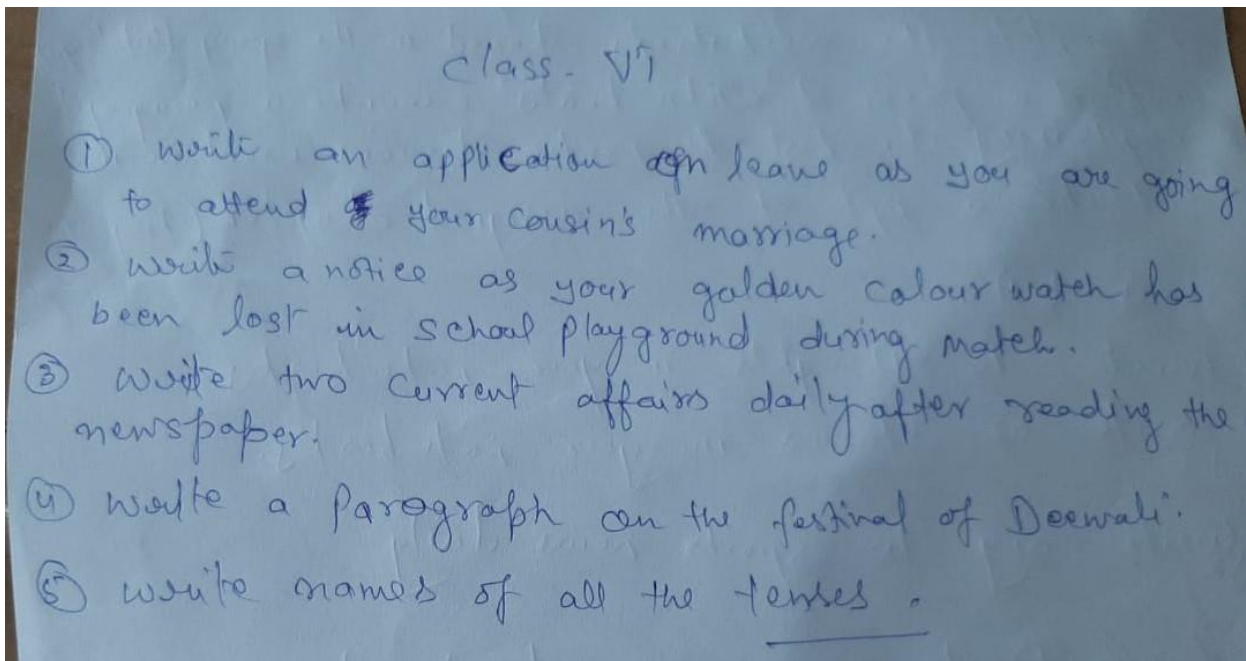 Class - VI
① Write an application on leave as you are going
to attend your cousin's marriage.
② Write a notice as your golden colour watch has
been lost in school playground during match.
③ Write two current affairs daily after reading the
newspaper.
④ Write a Paragraph on the festival of Deewali.
⑤ Write names of all the tenses.